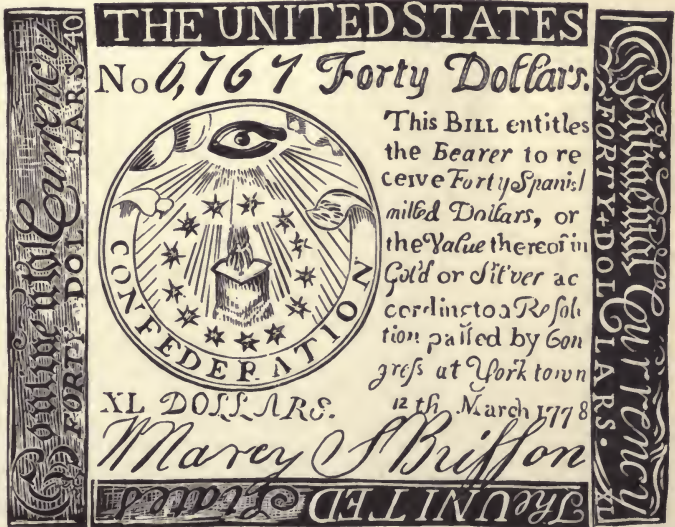 THE UNITED STATES
No 6,767 Forty Dollars.
This BILL entitles
the Bearer to re
ceive Forty Spanish
milled Dollars, or
the Value thereof in
Gold or Silver ac
cording to a Resolu
tion passed by Con
gress at York town
12 th. March 1778
CONFEDERATION
XL DOLLARS.
Continental Currency
FORTY DOLLARS 40
Continental Currency
FORTY DOLLARS. XL
The UNITED States